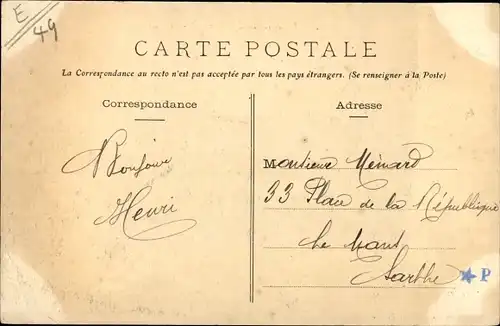 E
49
CARTE POSTALE
La Correspondance au recto n'est pas acceptée par tous les pays étrangers. (Se renseigner à la Poste)
Correspondance
Adresse
Bonjour
Henri
Monsieur Ménard
33 Place de la République
Le Mans
Sarthe
P